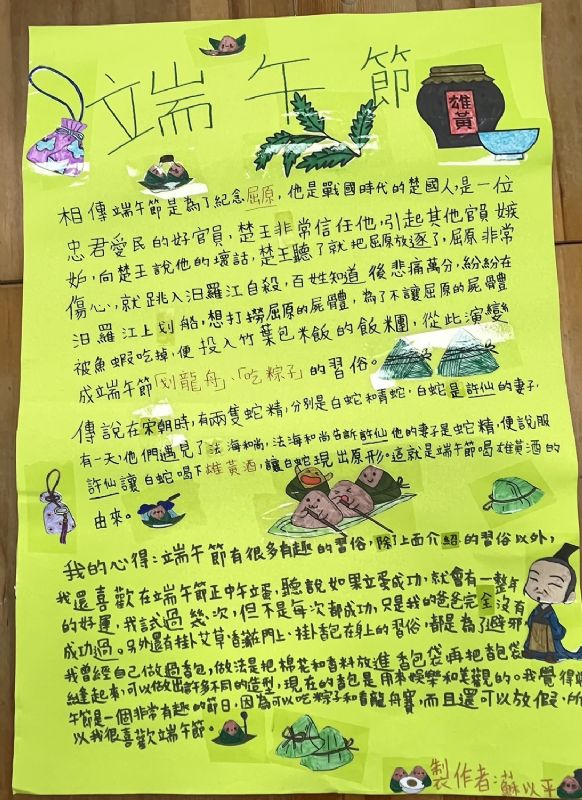 端午節
雄黃
相傳端午節是為了紀念屈原，他是戰國時代的楚國人，是一位
忠君愛民的好官員，楚王非常信任他，引起其他官員嫉
妒，向楚王說他的壞話，楚王聽了就把屈原放逐了，屈原非常
傷心，就跳入汨羅江自殺，百姓知道後悲痛萬分，紛紛在
汨羅江上划船，想打撈屈原的屍體，為了不讓屈原的屍體
被魚蝦吃掉，便投入竹葉包米飯的飯糰，從此演變
成端午節「划龍舟」、「吃粽子」的習俗。
傳說在宋朝時，有兩隻蛇精，分別是白蛇和青蛇，白蛇是許仙的妻子，
有一天，他們遇見了法海和尚，法海和尚告訴許仙他的妻子是蛇精，便說服
許仙讓白蛇喝下雄黃酒，讓白蛇現出原形。這就是端午節喝雄黃酒的
由來。
我的心得：端午節有很多有趣的習俗，除了上面介紹的習俗以外，
我還喜歡在端午節正中午立蛋，聽說如果立蛋成功，就會有一整年
的好運，我試過幾次，但不是每次都成功，只是我的爸爸完全沒有
成功過。另外還有掛艾草香蒲在門上、掛香包在身上的習俗，都是為了避邪
我曾經自己做過香包，做法是把棉花和香料放進香包袋再把香包袋
縫起來，可以做出許多不同的造型，現在的香包是用來娛樂和美觀的。我覺得端
午節是一個非常有趣的節日，因為可以吃粽子和看龍舟賽，而且還可以放假，所
以我很喜歡端午節。
製作者：蘇以平